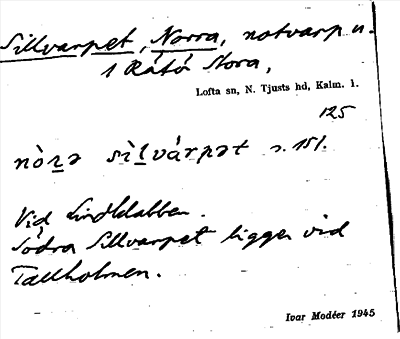 Sillvarpet, Norra, notvarp n.
i Rätö Stora,
Lofta sn, N. Tjusts hd, Kalm. l.
125
nòrə sìlvárpət s. 151.
Vid
Södra Sillvarpet ligger vid
Tallholmen.
Ivar Modéer 1945